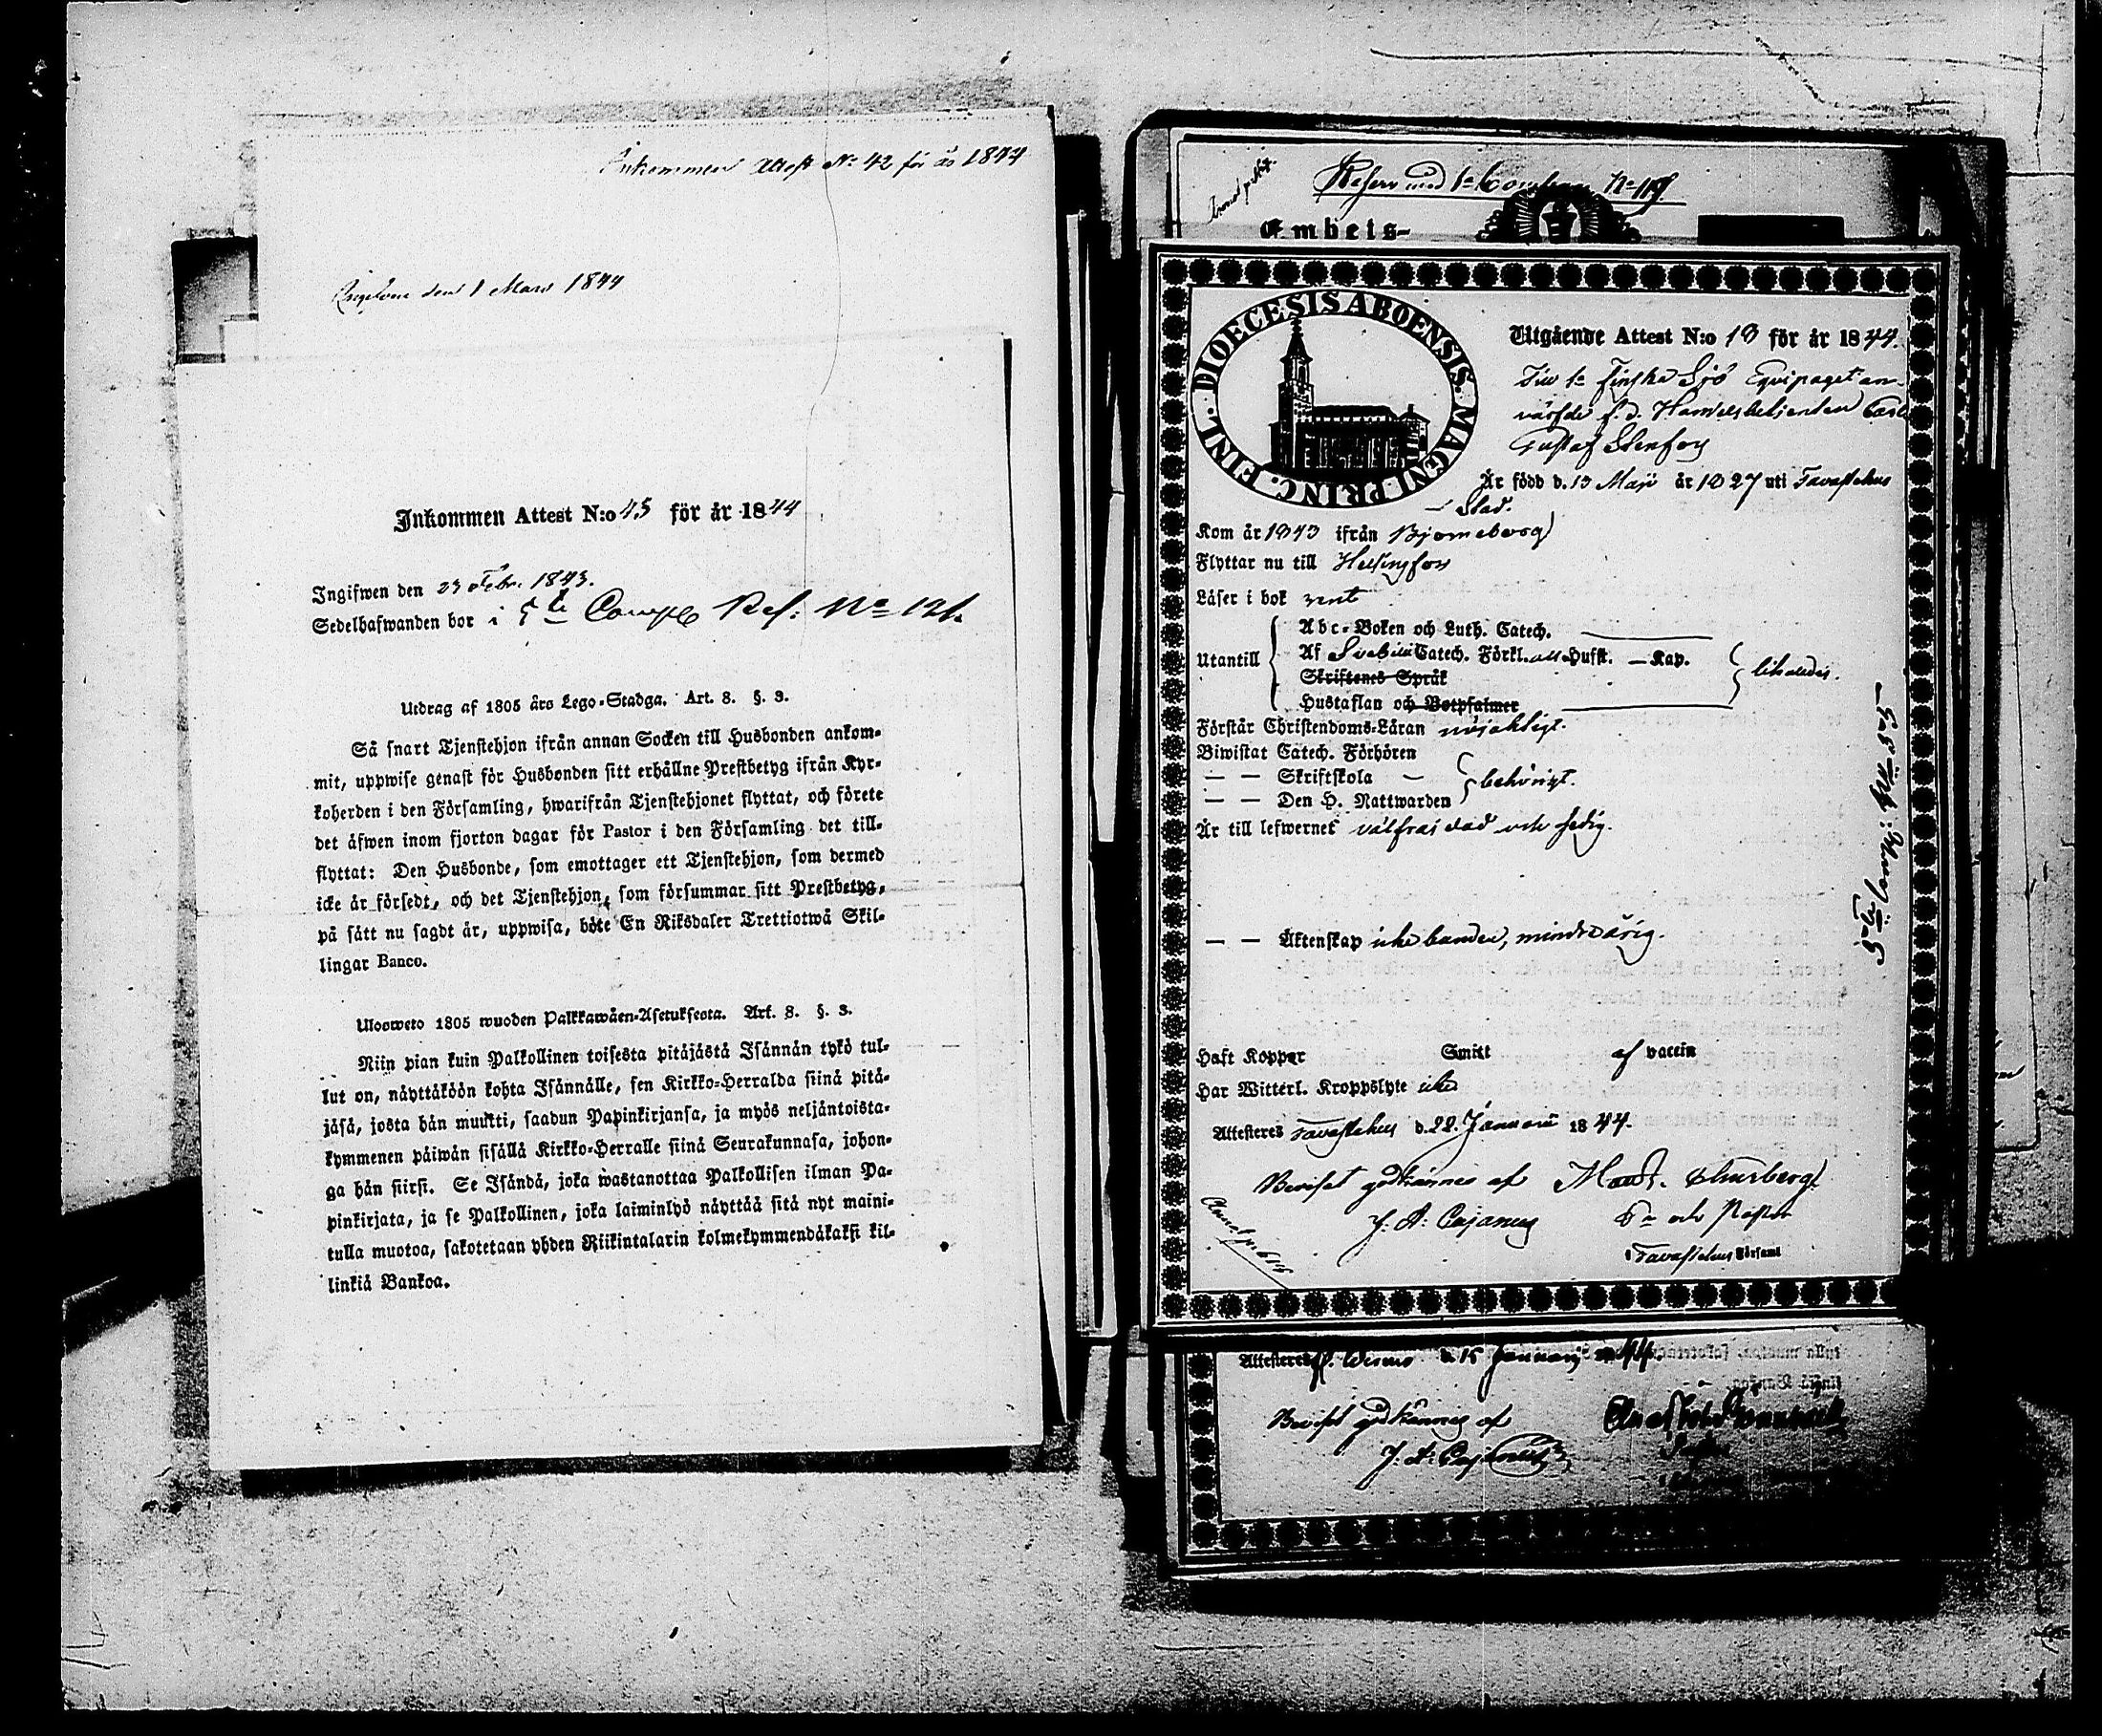 Inkommen Attest No 42 för år 1844
Ingifven den 1 Mars 1844
Inkommen Attest N:o 45 för år 1844
Ingifwen den 23 Febr. 1843.
Sedelhafwanden bor i 5te Comp Ref: No 121.
Utdrag af 1805 års Lego-Stadga. Art. 8. §. 3.
Så snart Tjenstehjon ifrån annan Socken till Husbonden ankom-
mit, uppwise genast för Husbonden sitt erhållne Prestbetyg ifrån Kyr-
koherden i den Församling, hwarifrån Tjenstehjonet flyttat, och förete
det äfwen inom fjorton dagar för Pastor i den Församling det till-
flyttat: Den Husbonde, som emottager ett Tjenstehjon, som dermed
icke är försedt, och det Tjenstehjon, som försummar sitt Prestbetyg,
på sätt nu sagdt är, uppwisa, böte En Riksdaler Trettiotwå Skil-
lingar Banco.
Ulosweto 1805 wuoden Palkkawäen-Asetuksesta. Art. 8. §. 3.
Niin pian kuin Palkollinen toisesta pitäjästä Isännän tykö tul-
lut on, näyttäköön kohta Isännälle, sen Kirkko-Herralda siinä pitä-
jäsä, josta hän muutti, saadun Papinkirjansa, ja myös neljäntoista-
kymmenen päiwän sisällä Kirkko-Herralle siinä Seurakunnasa, johon-
ga hän siirsi. Se Isändä, joka wastanottaa Palkollisen ilman Pa-
pinkirjata, ja se Palkollinen, joka laiminlyö näyttää sitä nyt maini-
tulla muotoa, sakotetaan yhden Riikintalarin kolmekymmendäkaksi kil-
linkiä Bankoa.
Reserv med 1a Comp No 119
Embets-
DIOECESIS ABOENSIS. MAGNI PRINC. FINL.
Utgående Attest N:o 13 för år 1844.
Till 1a Finska Sjö Equipaget an-
värfde f. d. Handelsbetjenten Carl
Gustaf Stenfors
Är född d. 13 Maji år 1827 uti Tavastehus
Stad.
Kom år 1843 ifrån Björneborg
Flyttar nu till Helsingfors
Läser i bok rent
Utantill
Abc-Boken och Luth. Catech.
Af Svebilii Catech. Förkl. alla Hufst. — Kap.
Skriftenes Språk
Hustaflan och Botpsalmer
likaledes.
Förstår Christendoms-Läran nöjaktigt.
Biwistat Catech. Förhören
— — Skriftskola —
— — Den H. Nattwarden
behörigt.
Är till lefwernet välfräjdad och sedig.
— — Äktenskap icke bunden, minderårig.
Haft Koppor Smitt af vaccin
Har Witterl. Kroppslyte icke
Attesteres Tavastehus d. 22 Januarii 1844.
Beviset godkännes af
J. A. Cajanus
Thurberg
Pr och Pastor
i Tavastehus Församl
5te Comp: No 35
Attesteres d. 15 Januarij 1844.
Beviset godkännes af
J. A. Cajanus